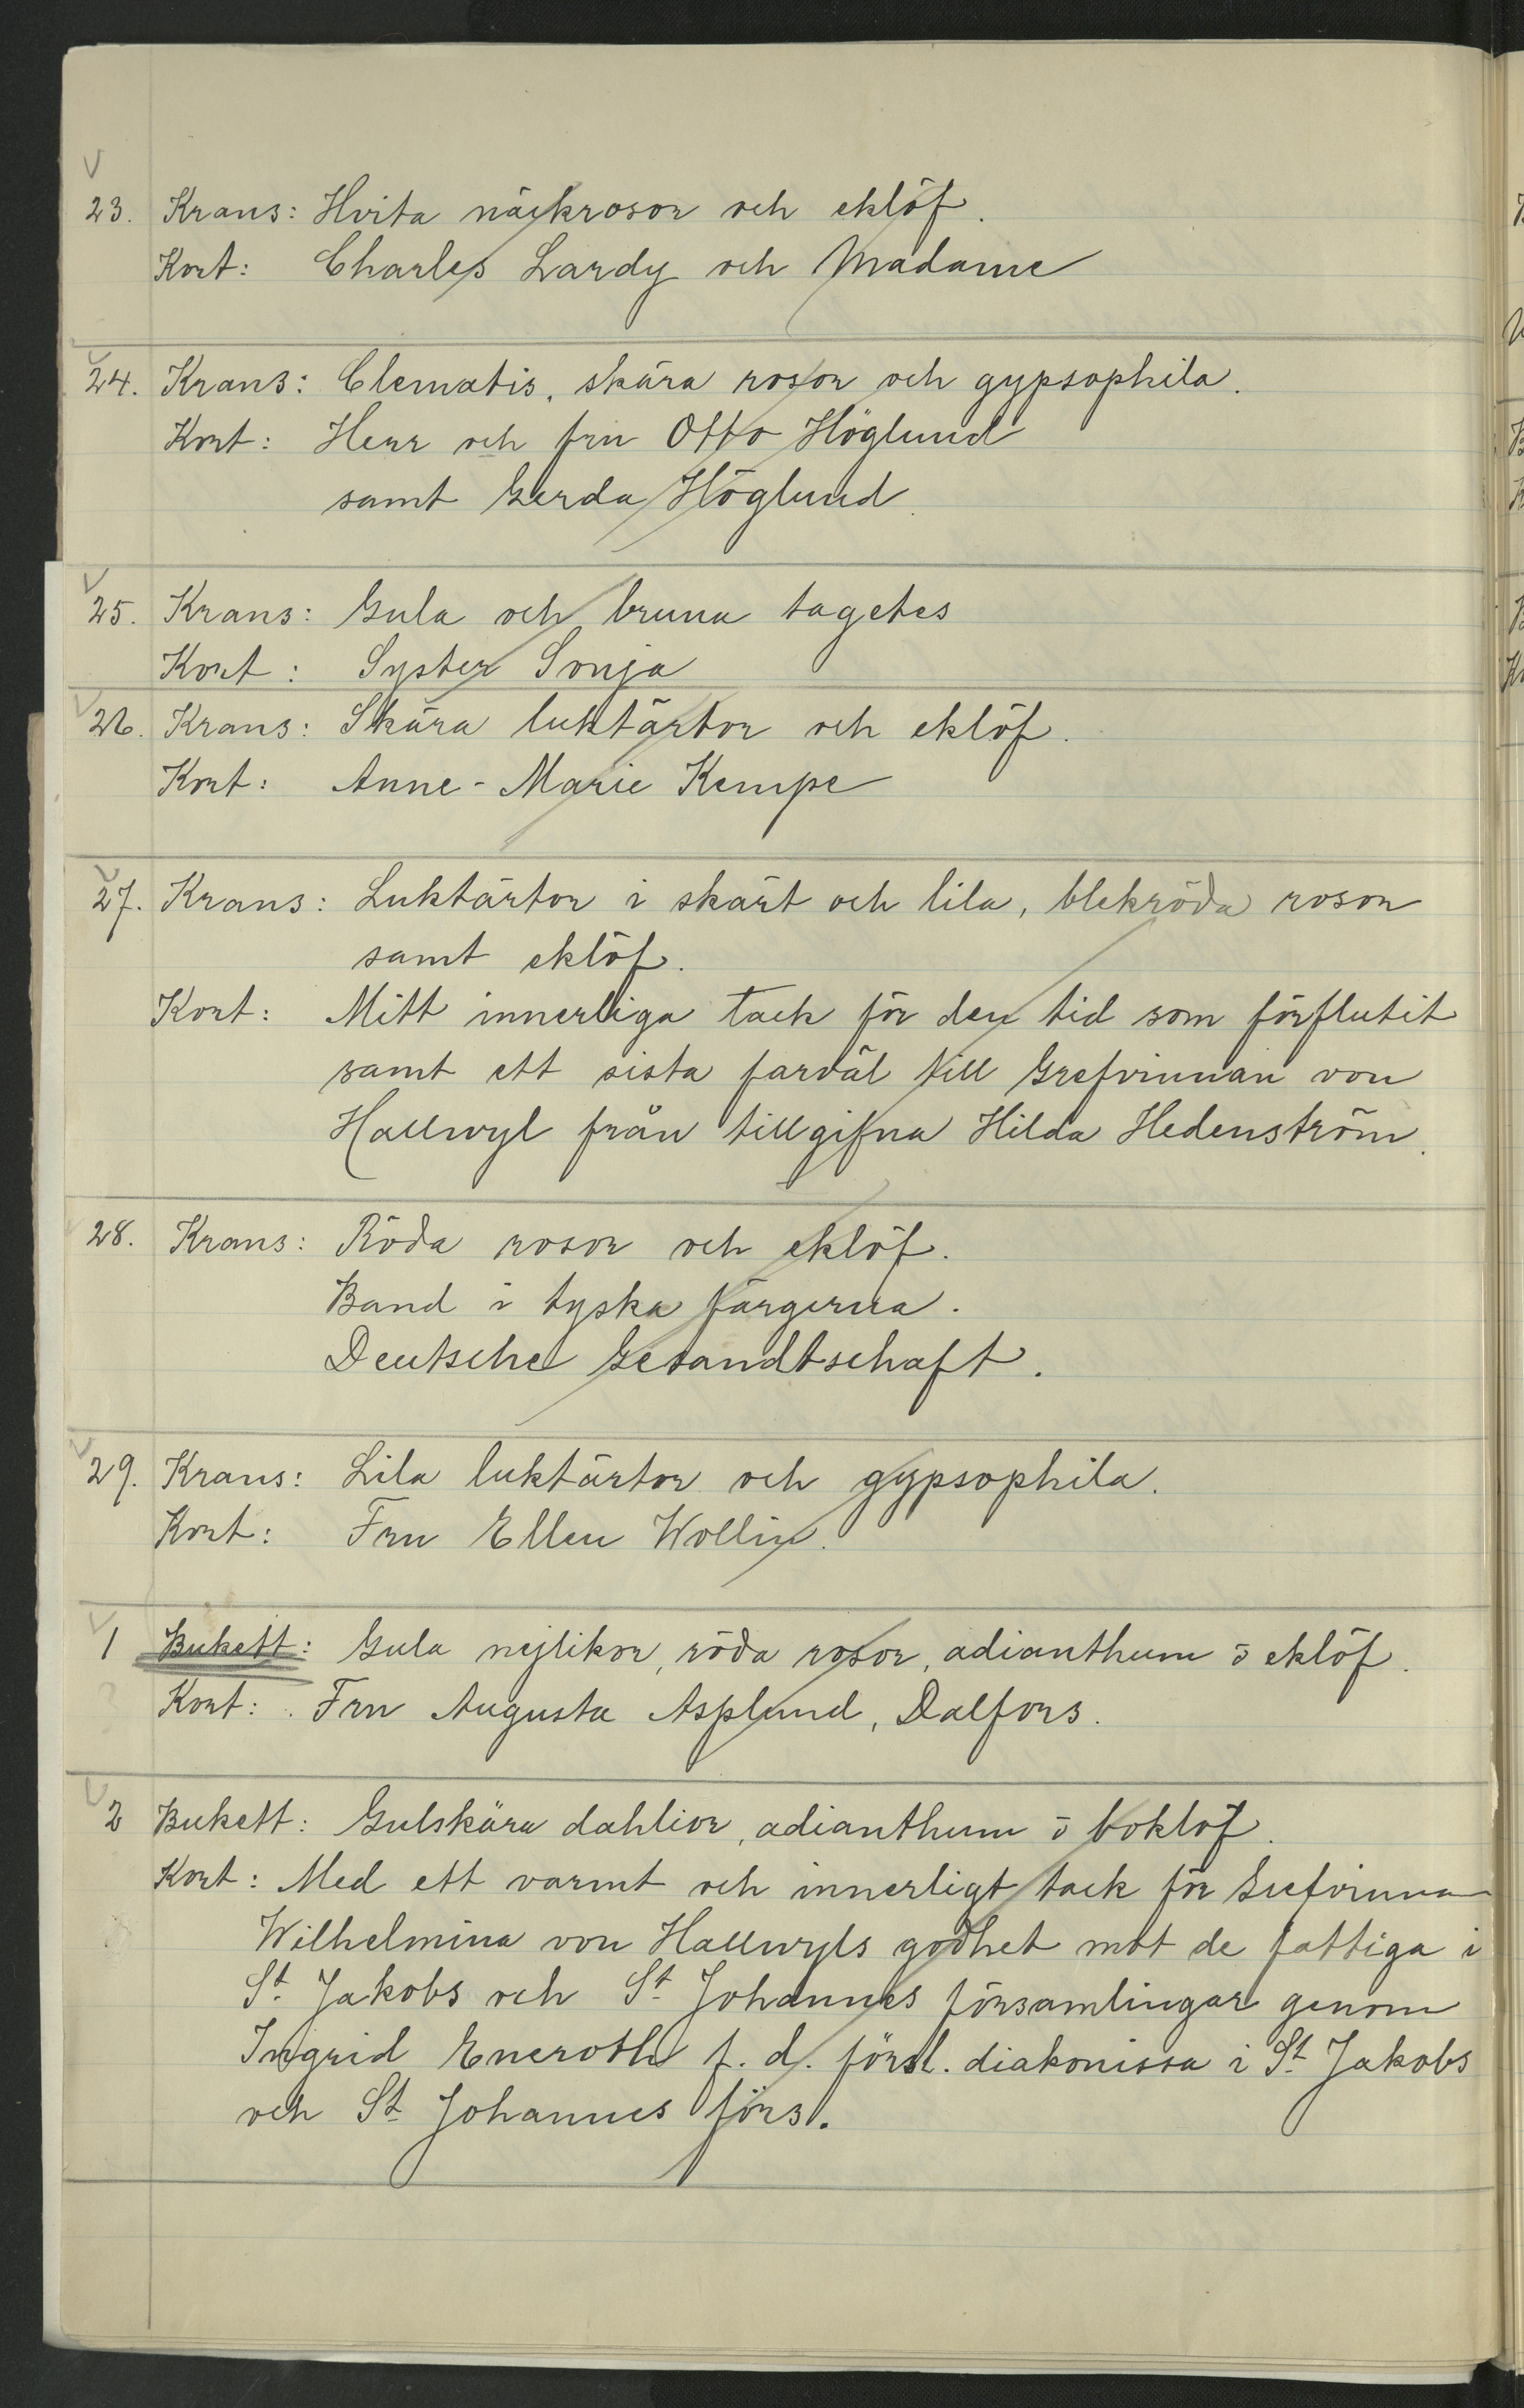 23. Krans: Hvita näckrosor och eklöf.
Kort: Charles Lardy och Madame
24. Krans: Clematis, skära rosor och gypsophila.
Kort: Herr och fru Otto Höglund
samt Gerda Höglund.
25. Krans: Gula och bruna tagetes
Kort: Syster Sonja
26. Krans: Skära luktärtor och eklöf.
Kort: Anne-Marie Kempe
27. Krans: Luktärtor i skärt och lila, blekröda rosor
samt eklöf.
Kort: Mitt innerliga tack för den tid som förflutit
samt ett sista farväl till Grefvinnan von
Hallwyl från tillgifna Hilda Hedenström.
28. Krans: Röda rosor och eklöf.
Band i tyska färgerna.
Deutsche Gesandtschaft.
29. Krans: Lila luktärtor och gypsophila.
Kort: Fru Ellen Wollin.
1 Bukett: Gula nejlikor, röda rosor, adianthum o eklöf.
Kort: Fru Augusta Asplund, Dalfors.
2 Bukett: Gulskära dahlior, adianthum o boklöf.
Kort: Med ett varmt och innerligt tack för Grefvinna
Wilhelmina von Hallwyls godhet mot de fattiga i
St. Jakobs och St. Johannes församlingar genom
Ingrid Eneroth f. d. förs. diakonissa i St. Jakobs
och St. Johannes förs.